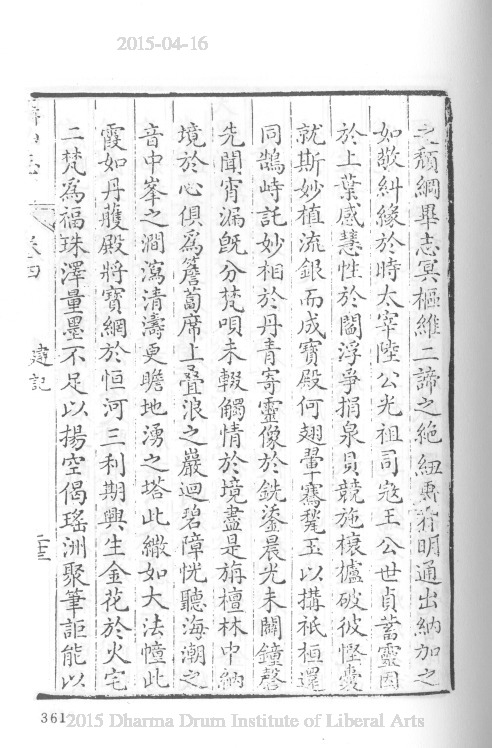 2015-04-16
之頹綱畢志冥樞維二諦之絶紐專精明通出納加之
如敬糾緣於時太宰陸公光祖司寇王公世貞蓄靈因
於上葉感慧性於閻浮爭捐泉貝競施榱櫨破彼慳囊
就斯妙植流銀而成寶殿何翅翬騫甃玉以搆祇桓還
同鵠峙託妙相於丹青寄靈像於銑鎏晨光未闢鐘磬
先聞宵漏既分梵唄未輟觸情於境盡是旃檀林中納
境於心俱為簷蔔席上疊浪之巖迴碧障恍聽海潮之
音中峯之澗瀉清濤更瞻地湧之塔此緻如大法幢此
霞如丹雘殿將寶網於恒河三利期興生金花於火宅
二梵為福珠澤量墨不足以揚空偈瑤洲聚筆詎能以
卷四
建記
三三
361
2015 Dharma Drum Institute of Liberal Arts